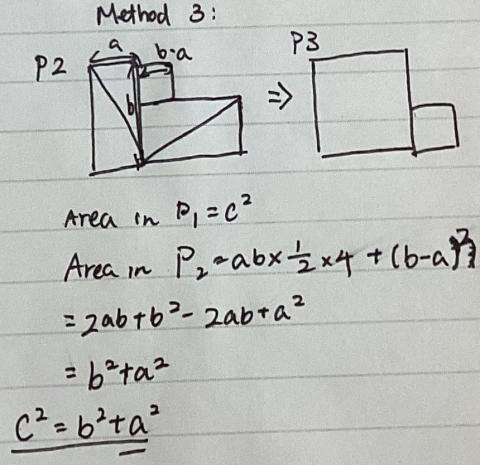 Method 3:
a
b-a
P2
P3
b
⇒
Area in P₁ = c²
Area in P₂ = ab × 1/2 × 4 + (b-a)²
= 2ab + b² - 2ab + a²
= b² + a²
c² = b² + a²